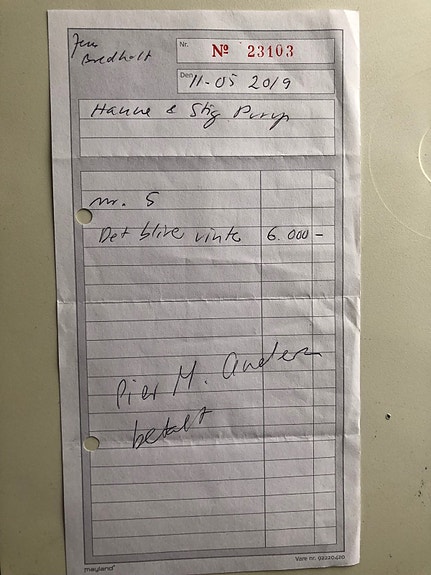 Jens
Bredholt
Nr.
№ 23103
Den 11-05 2019
Hanne & Stig
nr. 5
Det bliver vinter 6.000 -
Pier M. Andersen
betalt
mayland®
Vare nr. 92220400